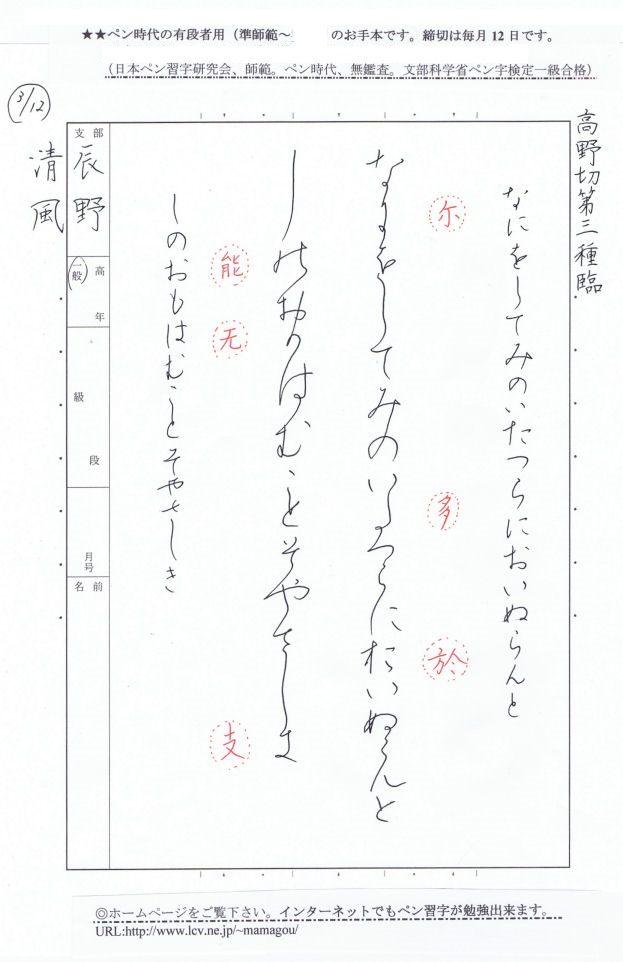 ★★ペン時代の有段者用（準師範～　　　のお手本です。締切は毎月12日です。
（日本ペン習字研究会、師範。ペン時代、無鑑査。文部科学省ペン字検定一級合格）
3/12
高野切第三種臨
なにをしてみのいたつらにおいぬらんと
尓
多
於
なにをしてみのいたつらにおいぬらんと
能
无
支
しのおもはむことそやさしき
しのおもはむことそやさしき
支部
辰野
清風
高年
一般
級
段
月号
名前
◎ホームページをご覧下さい。インターネットでもペン習字が勉強出来ます。
URL:http://www.lcv.ne.jp/~mamagou/